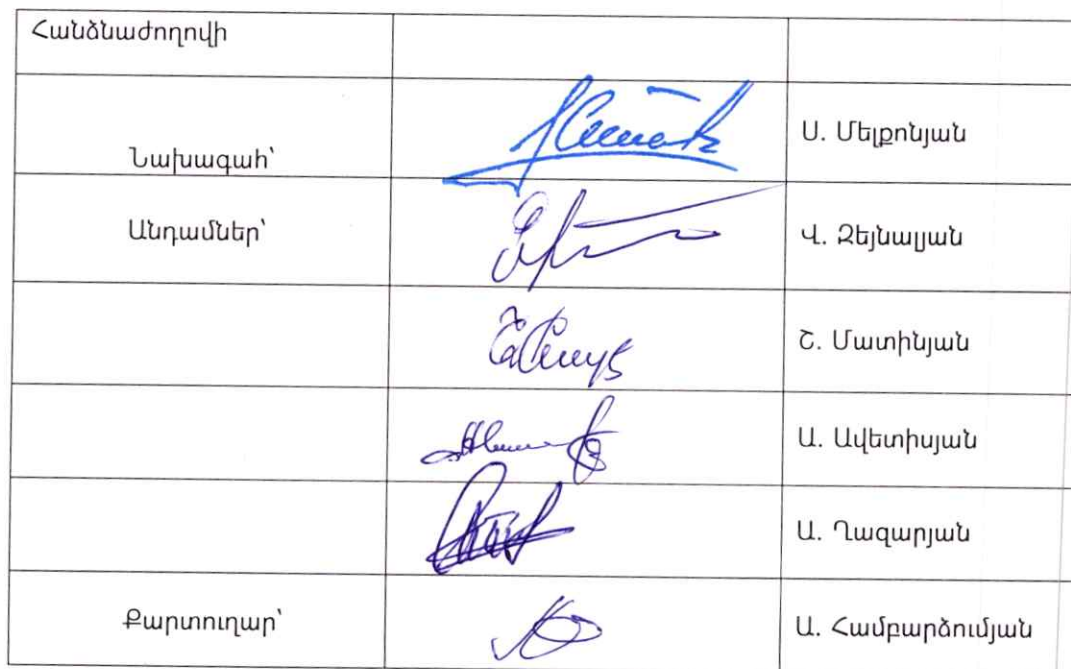 Հանձնաժողովի
Նախագահ՝ Ս. Մելքոնյան
Անդամներ՝ Վ. Զեյնալյան
Շ. Մատինյան
Ա. Ավետիսյան
Ա. Ղազարյան
Քարտուղար՝ Ա. Համբարձումյան